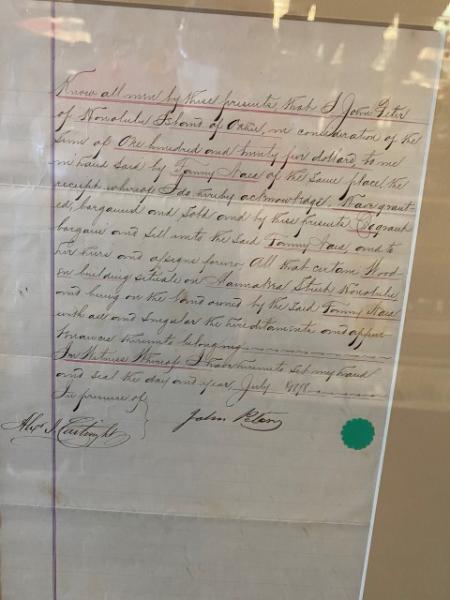 Know all men by these presents that I John Peter
of Honolulu Island of Oahu, in consideration of the
sum of One hundred and twenty five dollars, to me
in hand paid by Fanny Naea of the same place, the
receipt whereof I do hereby acknowledge, Have grant-
ed, bargained and sold and by these presents Do grant
bargain and sell unto the said Fanny Naea and to
her heirs and assigns forever All that certain Wood-
en building situate on Street Honolulu
and being on the land owned by the said Fanny Naea
with all and singular the hereditaments and appur-
tenances thereunto belonging
In Witness Whereof I have hereunto set my hand
and seal the day and year July
In presence of
Alex. J. Cartwright
John Peter